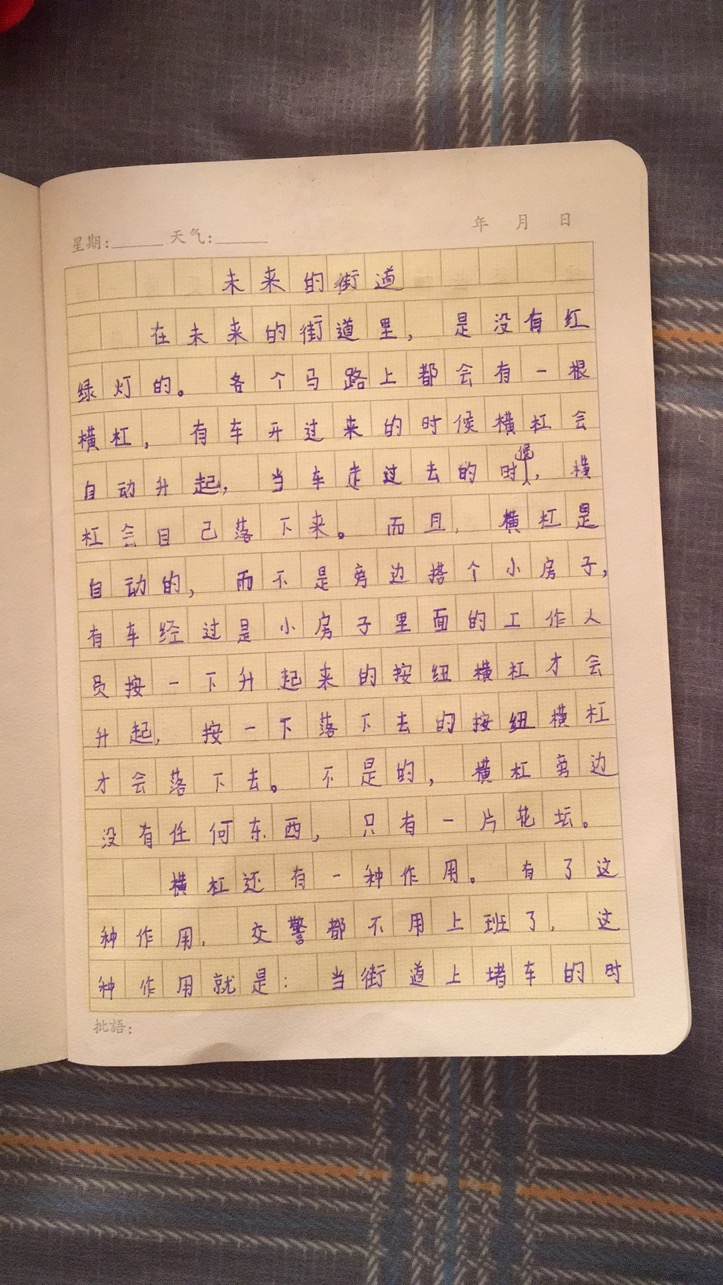 星期:______ 天气:______ 年 月 日
未来的街道
在未来的街道里，是没有红
绿灯的。各个马路上都会有一根
横杠，有车开过来的时候横杠会
自动升起，当车走过去的时候，横
杠会自己落下来。而且，横杠是
自动的，而不是旁边搭个小房子，
有车经过是小房子里面的工作人
员按一下升起来的按纽横杠才会
升起，按一下落下去的按纽横杠
才会落下去。不是的，横杠旁边
没有任何东西，只有一片花坛。
横杠还有一种作用。有了这
种作用，交警都不用上班了，这
种作用就是：当街道上堵车的时
批語：